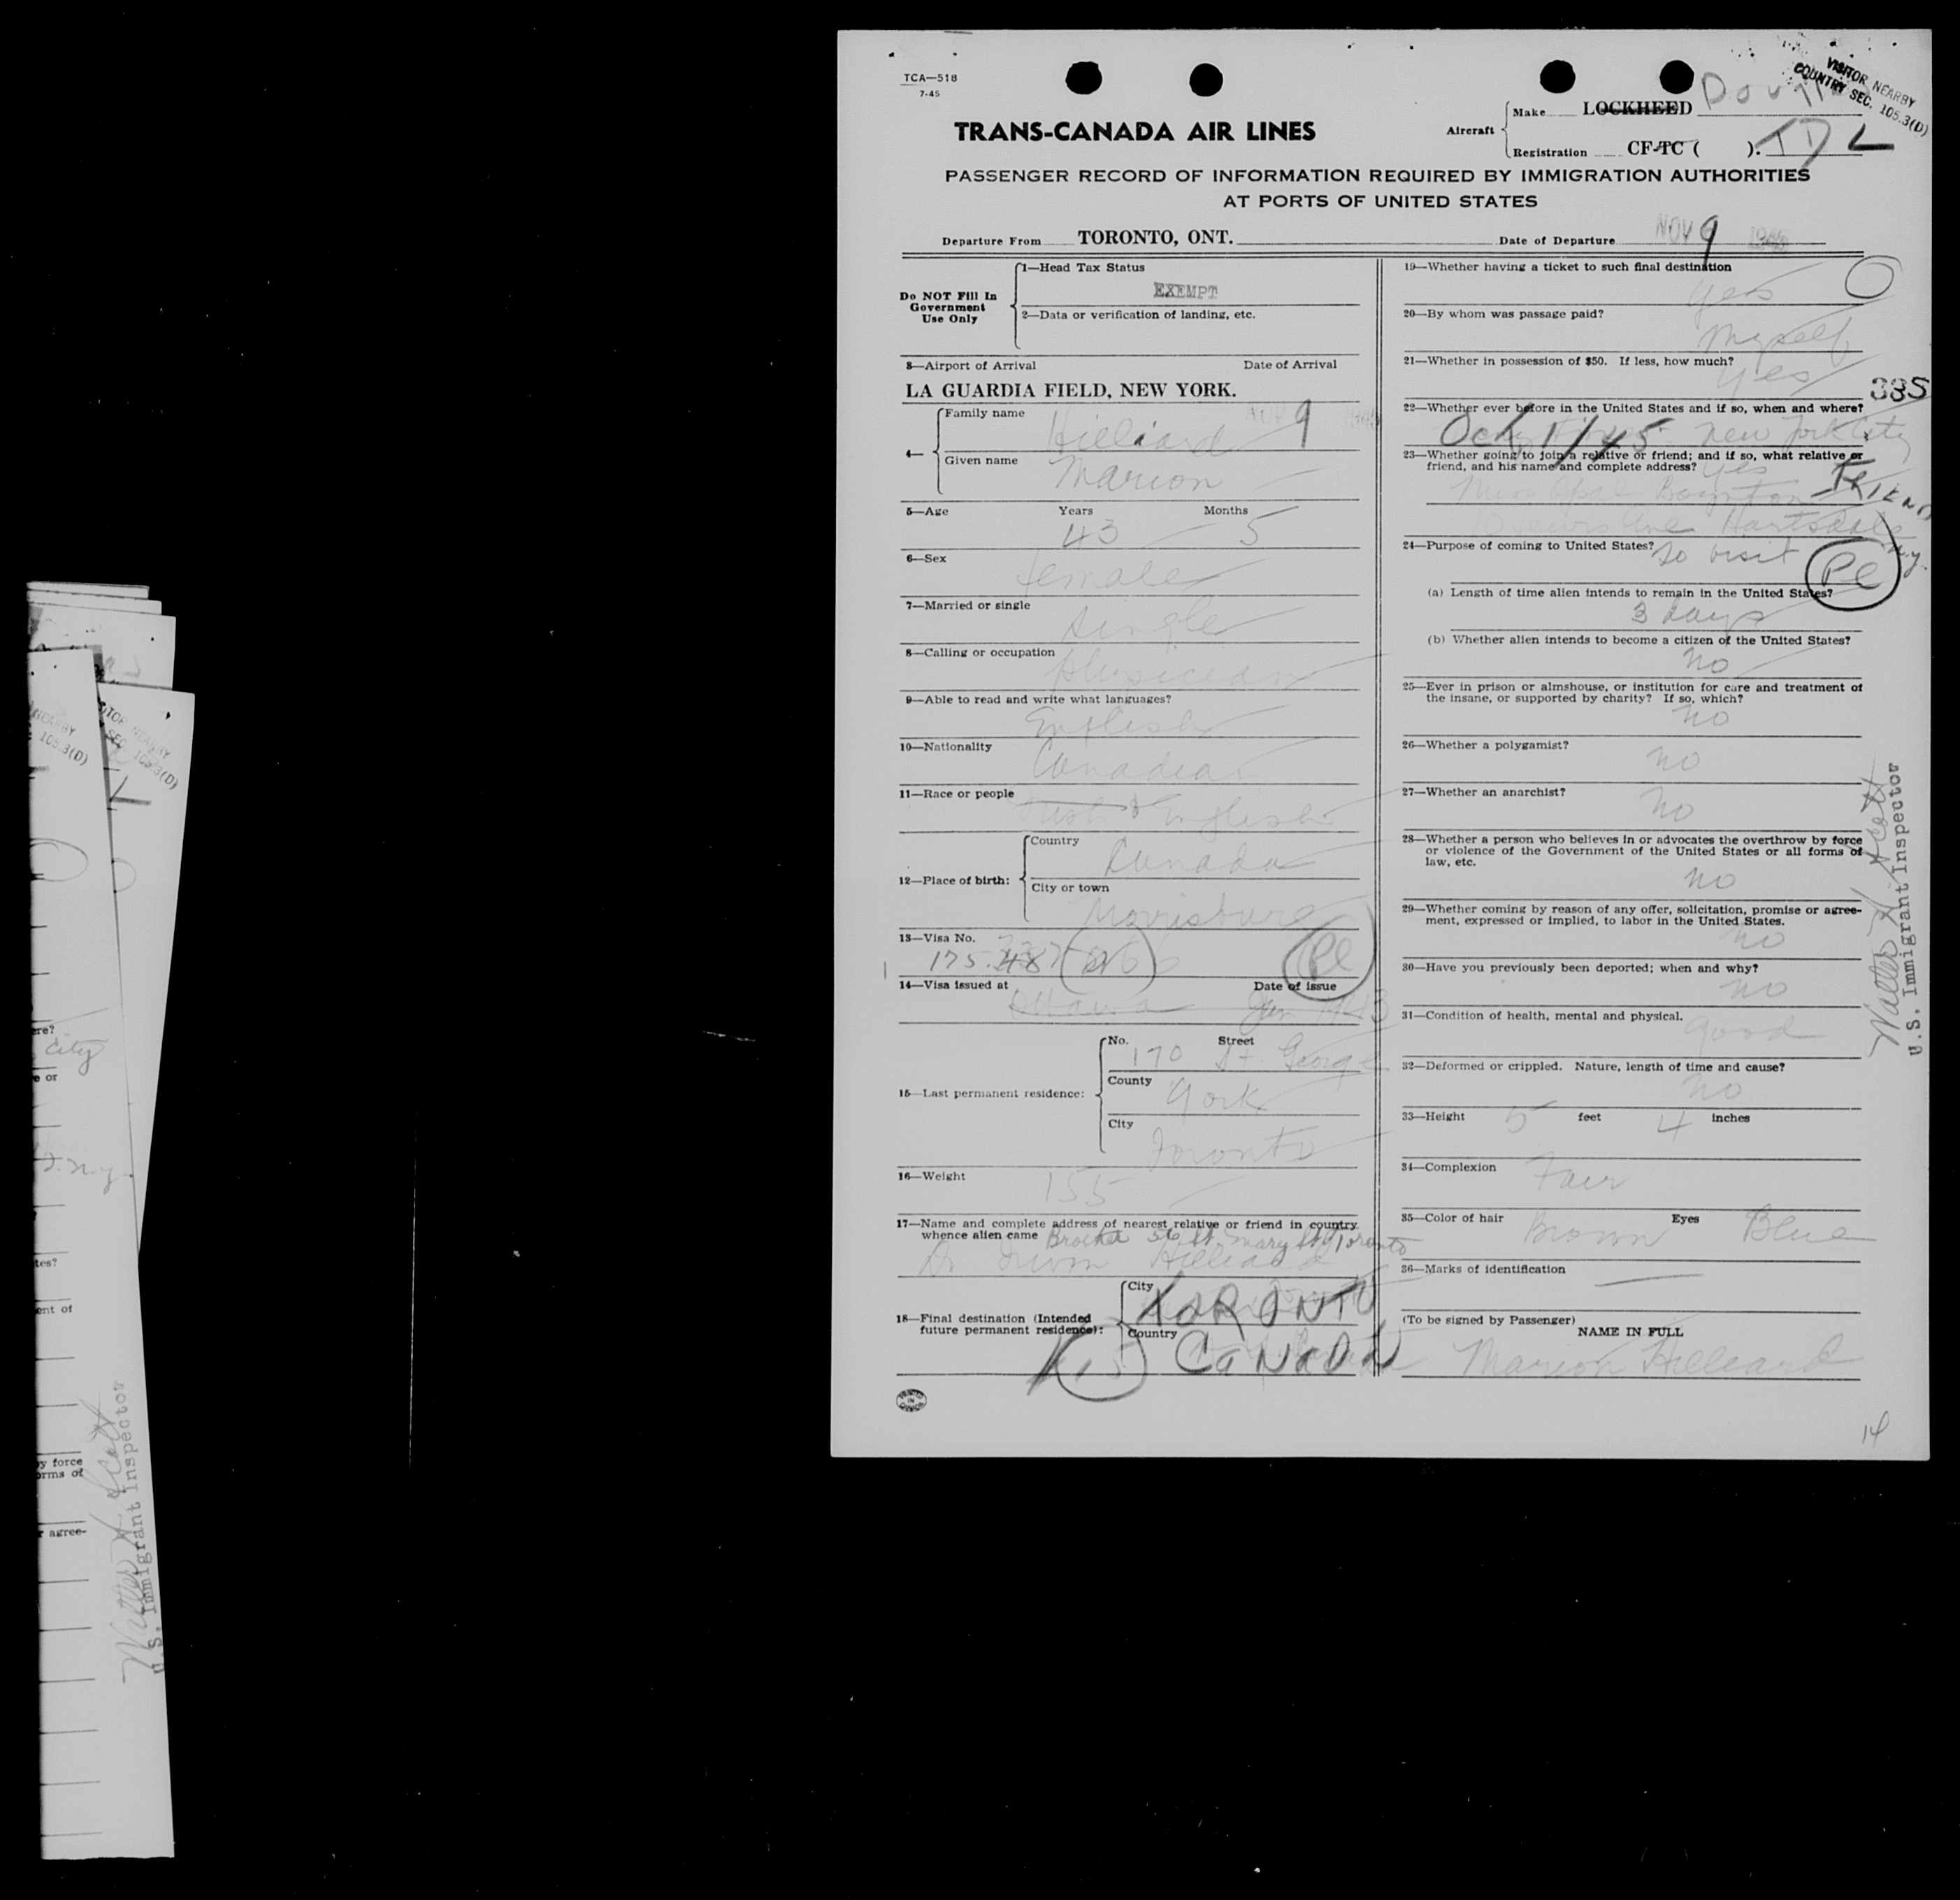 TCA—518
7-45
VISITOR NEARBY
COUNTRY SEC. 105.3(D)
TRANS-CANADA AIR LINES
Aircraft
Make LOCKHEED
Registration CF-TC ( ). TDL
PASSENGER RECORD OF INFORMATION REQUIRED BY IMMIGRATION AUTHORITIES
AT PORTS OF UNITED STATES
Departure From TORONTO, ONT. Date of Departure NOV 9
Do NOT Fill In
Government
Use Only
1—Head Tax Status
EXEMPT
2—Data or verification of landing, etc.
3—Airport of Arrival Date of Arrival
LA GUARDIA FIELD, NEW YORK.
9
4—
Family name
Hilliard
Given name
Marion
5—Age Years Months
43 5
6—Sex
female
7—Married or single
single
8—Calling or occupation
physician
9—Able to read and write what languages?
English
10—Nationality
Canadian
11—Race or people
Irish & English
12—Place of birth:
Country
Canada
City or town
Morrisburg
13—Visa No.
175.
Pl
14—Visa issued at Date of issue
Ottawa
15—Last permanent residence:
No. Street
170 St. George
County
York
City
Toronto
16—Weight
155
17—Name and complete address of nearest relative or friend in country
whence alien came Brother 56 St. Mary St Toronto
Dr Irwin Hilliard
18—Final destination (Intended
future permanent residence):
City
TORONTO
Country
CANADA
19—Whether having a ticket to such final destination
yes
20—By whom was passage paid?
Myself
21—Whether in possession of $50. If less, how much?
yes
38S
22—Whether ever before in the United States and if so, when and where?
Oct 1/45 New York City
23—Whether going to join a relative or friend; and if so, what relative or
friend, and his name and complete address? yes
FRIEND
Miss Opal Boynton
Ave Hartsdale
N.Y.
24—Purpose of coming to United States? to visit
Pl
(a) Length of time alien intends to remain in the United States?
3 days
(b) Whether alien intends to become a citizen of the United States?
no
25—Ever in prison or almshouse, or institution for care and treatment of
the insane, or supported by charity? If so, which?
no
26—Whether a polygamist?
no
27—Whether an anarchist?
no
28—Whether a person who believes in or advocates the overthrow by force
or violence of the Government of the United States or all forms of
law, etc.
no
29—Whether coming by reason of any offer, solicitation, promise or agree-
ment, expressed or implied, to labor in the United States.
no
30—Have you previously been deported; when and why?
no
31—Condition of health, mental and physical.
good
32—Deformed or crippled. Nature, length of time and cause?
no
33—Height 5 feet 4 inches
34—Complexion
Fair
35—Color of hair Brown Eyes Blue
36—Marks of identification
(To be signed by Passenger)
NAME IN FULL
Marion Hilliard
14
Walter H Scott
U.S. Immigrant Inspector
NEARBY
105.3(D)
VISITOR NEARBY
SEC. 105.3(D)
ere?
City
e or
N.Y.
tes?
ent of
y force
orms of
r agree-
Walter H Scott
U.S. Immigrant Inspector